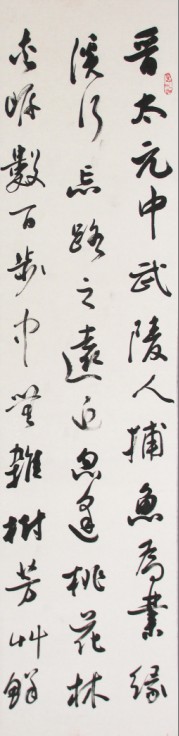 晉太元中武陵人捕魚為業緣
溪行忘路之遠近忽逢桃花林
夾岸數百步中無雜樹芳艸鮮